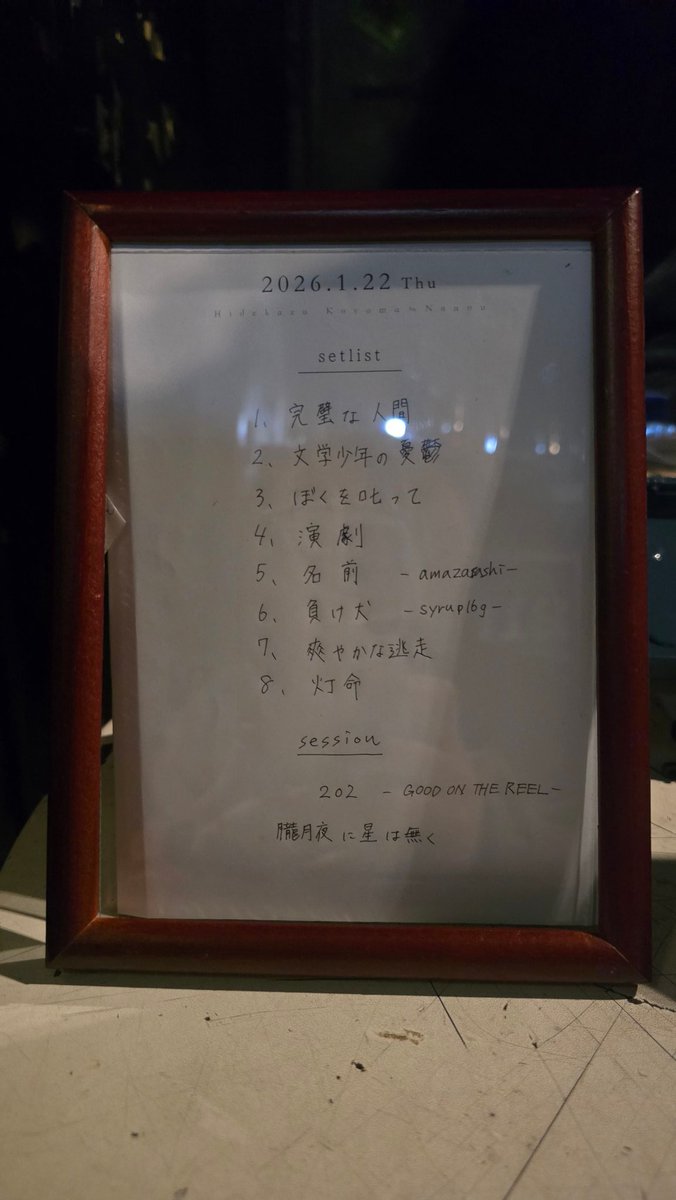 2026.1.22 Thu
Hideharu Koyama
setlist
1、完璧な人間
2、文学少年の憂鬱
3、ぼくを叱って
4、演劇
5、名前 -amazarashi-
6、負け犬 -syrup16g-
7、爽やかな逃走
8、灯命
session
202 - GOOD ON THE REEL-
朧月夜に星は無く